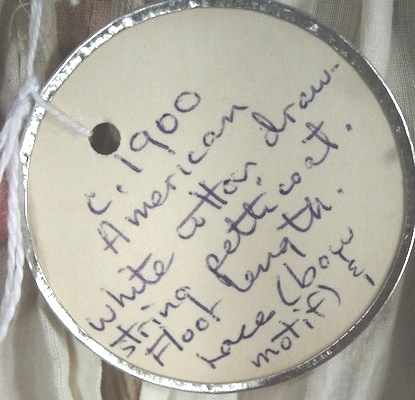 c. 1900
American
white cotton draw-
string petticoat.
Floor length.
Lace (bow
motif)